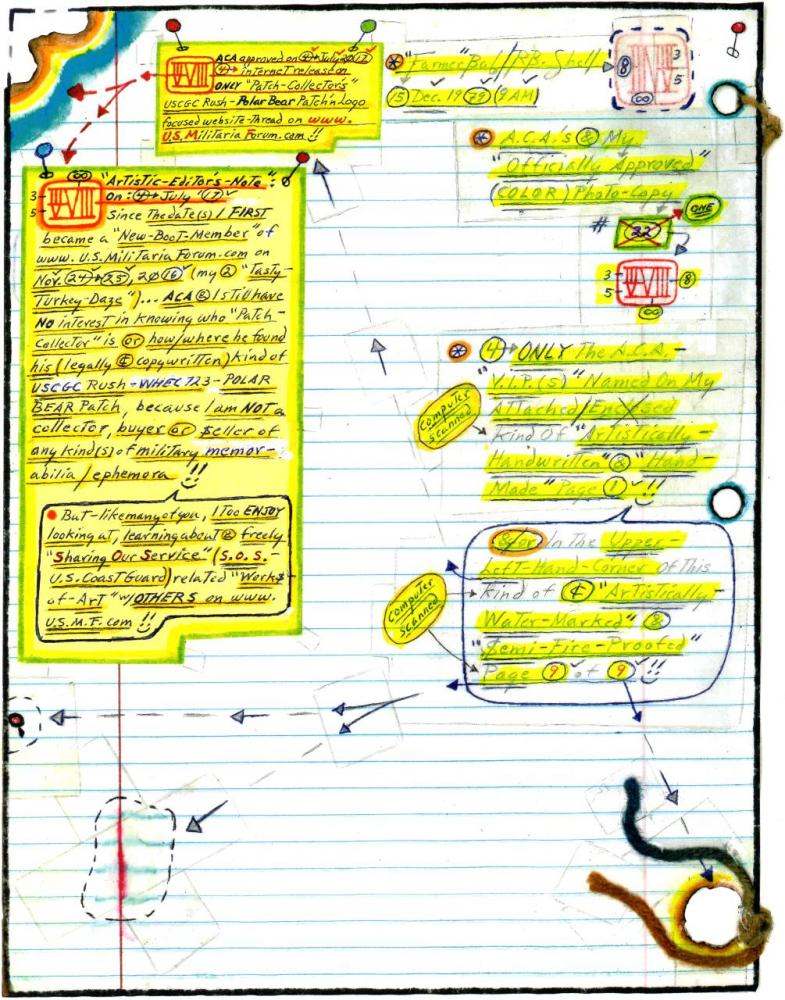 ACA approved on 4 July 2017
4 internet release on
ONLY "Patch-Collectors"
USCGC Rush-Polar Bear Patch'n Logo
focused website-Thread on www.
U.S. Militaria Forum.com !!
VIII
"Farmer" Bab/RB. Shell
15 Dec. 1979 (9AM)
8
3
5
∞
A.C.A.'s & My
"Officially Approved"
(COLOR) Photo-Copy
# 22
ONE
3
5
VIII
8
∞
4 ONLY The A.C.A.-
"V.I.P.(s)" Named On My
Attached/Enclosed
Kind Of "Artistically-
Handwritten" & "Hand-
Made" Page 1 !!
computer
scanned
&/or In The Upper-
Left-Hand-Corner Of This
Kind of © "Artistically-
Water-Marked" &
"Semi-Fire-Proofed"
Page 9 of 9 !!
computer
scanned
∞
3
5
VIII
"Artistic-Editor's-Note":
on: 4 July "17"
Since The date(s) I FIRST
became a "New-Boot-Member" of
www. U.S. Militaria Forum.com on
Nov. 24 25, 2016 (my 2 "Tasty-
Turkey-Daze")... ACA & I still have
NO interest in knowing who "Patch-
Collector" is or how/where he found
his (legally © copywritten) kind of
USCGC Rush-WHEC 723-POLAR
BEAR Patch, because I am NOT a
collector, buyer or $eller of
any kind(s) of military memor-
abilia/ephemera !!
But-like many of you, I Too ENJOY
looking at, learning about & freely
"Sharing Our Service" (S.O.S.-
U.S. Coast Guard) related "Works-
of-Art" w/OTHERS on www.
U.S.M.F.com !!